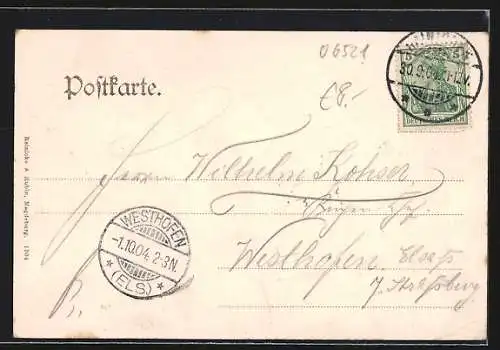 06521
£8.-
Postkarte.
30.9.04.
DEUTSCHES REICH
Herrn Wilhelm Kohser
Westhofen Elsass
b/ Strassburg
B.
WESTHOFEN
-1.10.04. 2-3N.
* (ELS) *
Reinicke & Rubin, Magdeburg. 1904